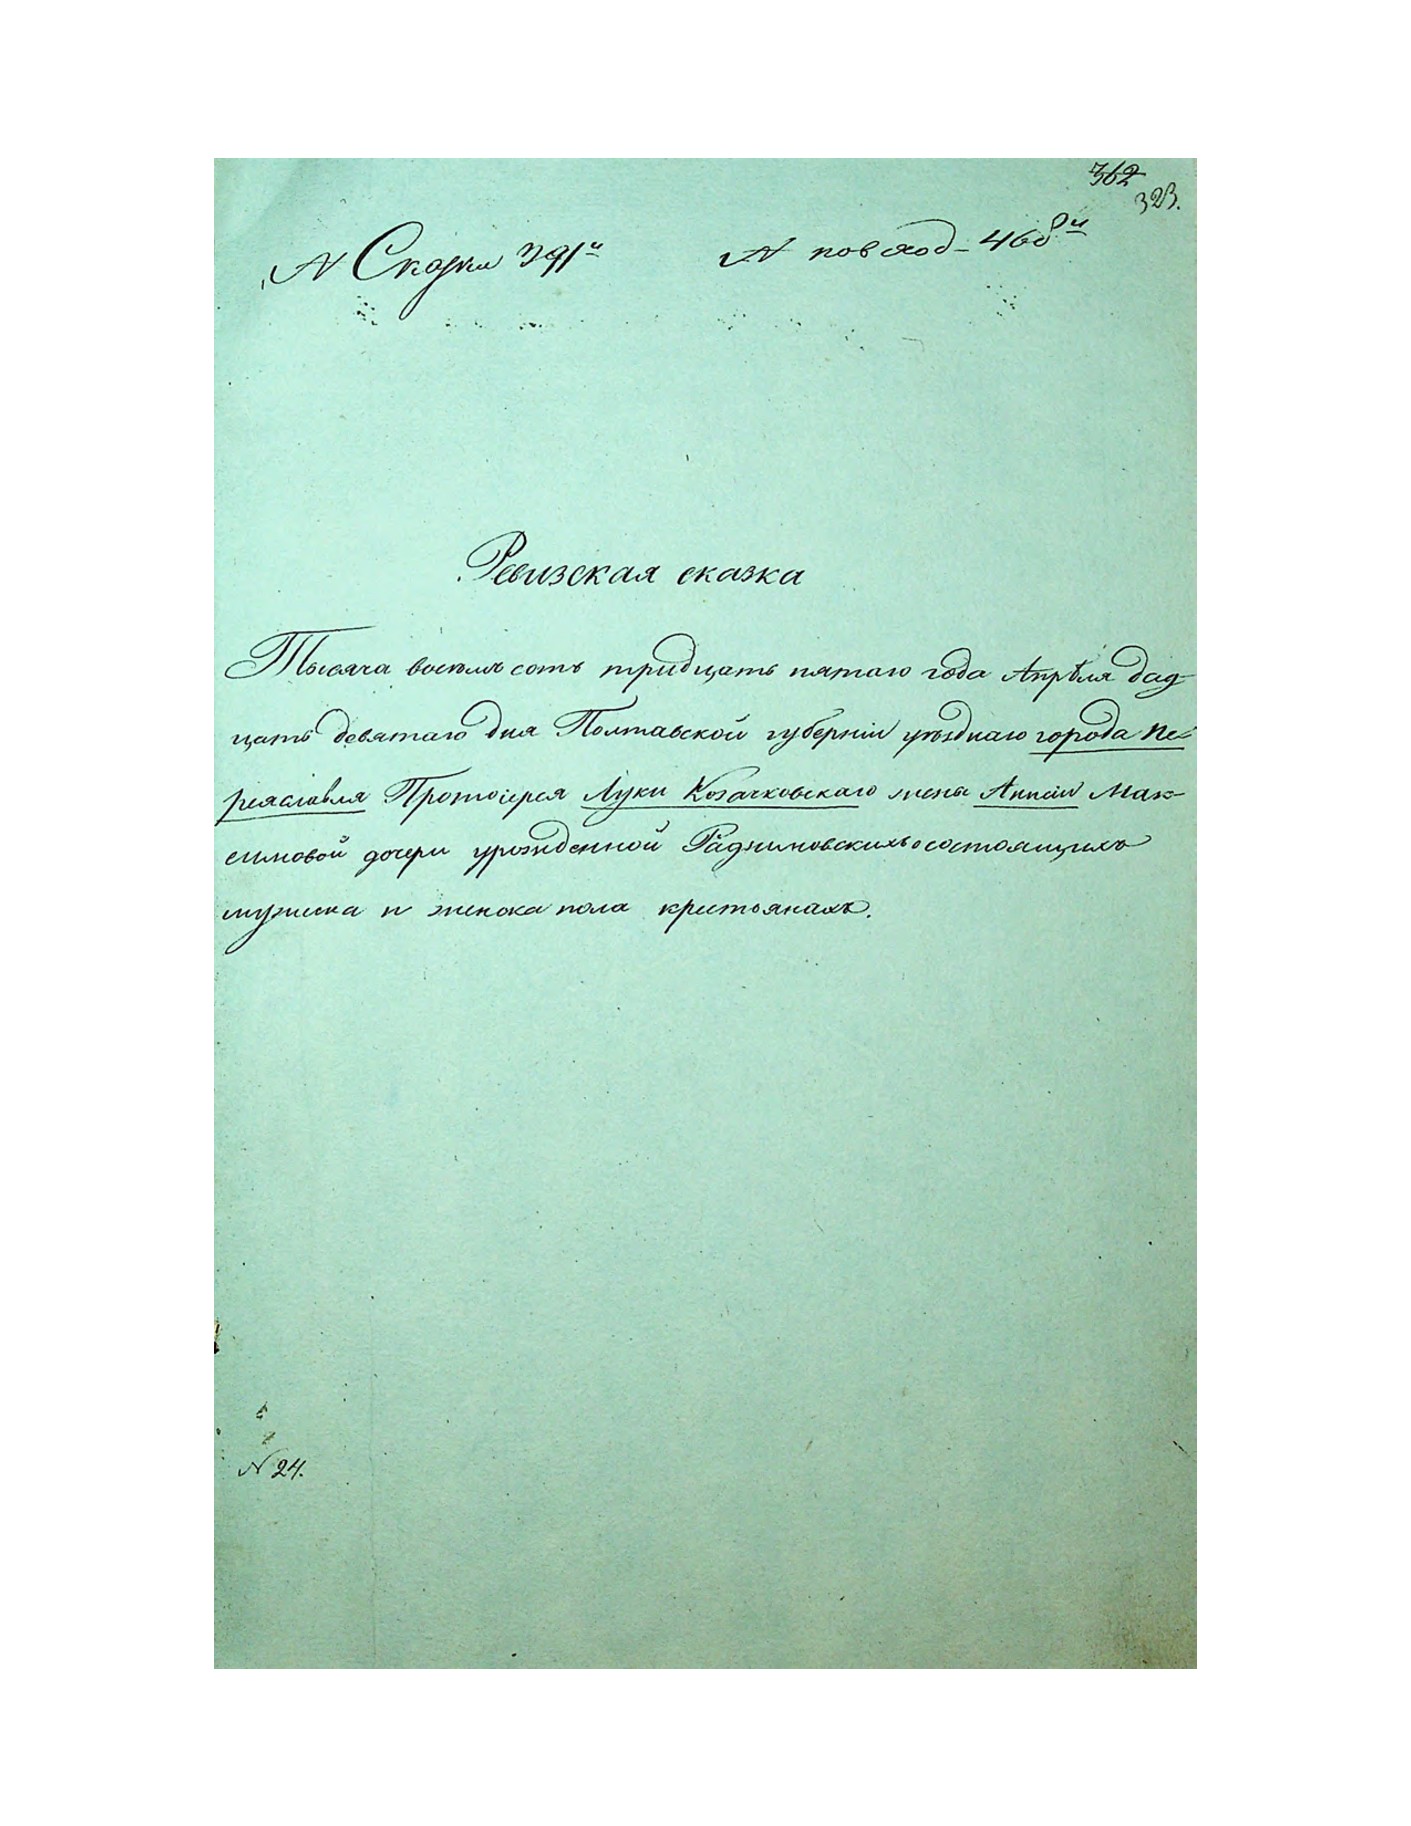 362
323.
№ Сказки 391й
№ повход-468й
Ревизская сказка
Тысяча восемь сотъ тридцать пятаго года Апрѣля двад-
цать девятаго дня Полтавской губерніи уѣзднаго города Пе-
реяславля Протоіерея Луки Козачковскаго жены Анны Мак-
симовой дочери урожденной Радзимовскихъ о состоящихъ
мужеска и женска пола крестьянахъ.
№ 24.